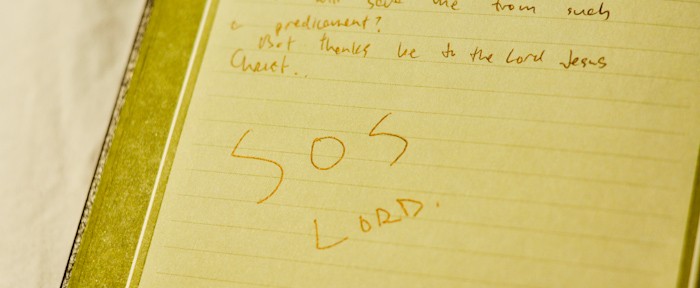 will save me from such
a predicament?
But thanks be to the Lord Jesus
Christ..
SOS
LORD.